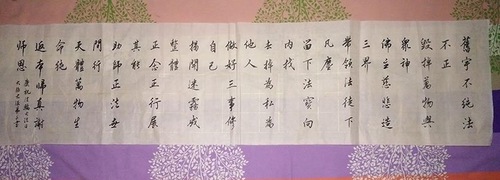 舊宇不純法
不正
毀掉萬物與
衆神
佛主慈悲造
三界
帶領法徒下
凡塵
留下法寶向
内找
去掉為私為
他人
做好三事修
自己
撥開迷霧成
整體
正念正行展
其能
助師正法
間行
天體萬物生
命純
返本歸真謝
師恩